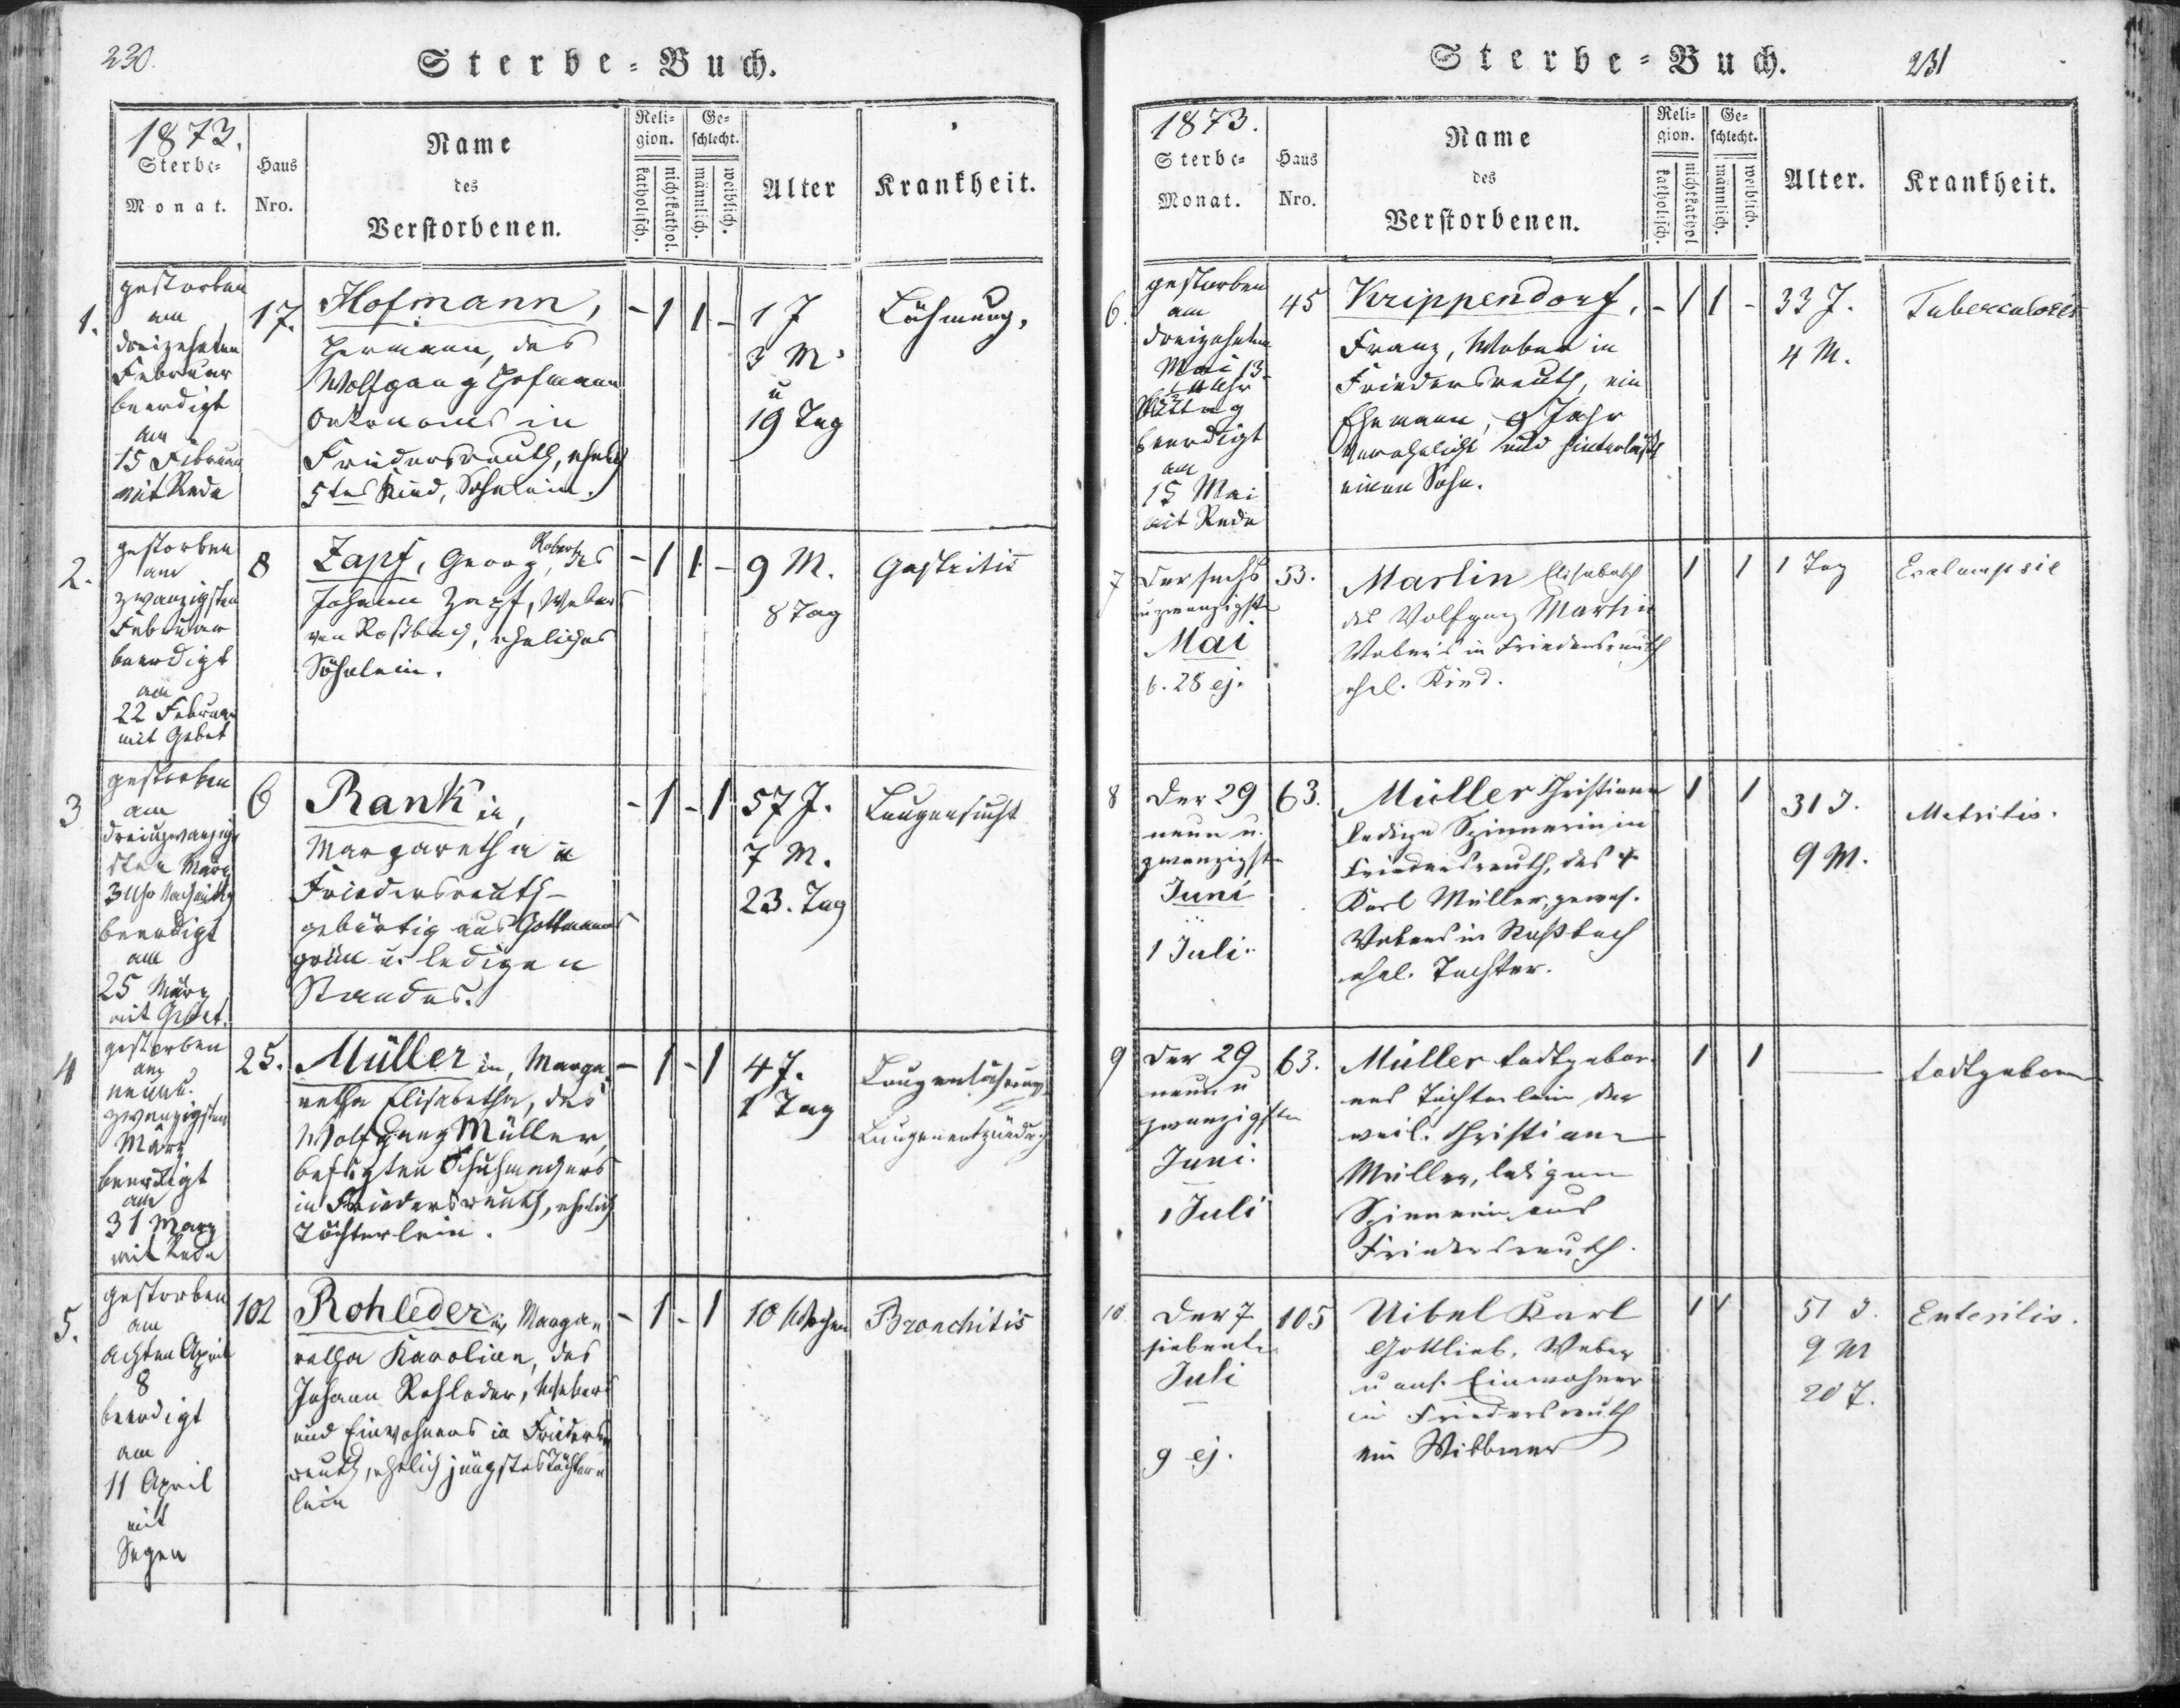 230.
Sterbe-Buch.
1873.
Sterbe-
Monat.
Haus
Nro.
Name
des
Verstorbenen.
Reli-
gion.
katholisch.
nichtkathol.
Ge-
schlecht.
männlich.
weiblich.
Alter
Krankheit.
1.
gestorben
am
dreizehnten
Februar
beerdigt
am
15 Februar
mit Rede
17.
Hofmann,
Hermann, des
Wolfgang Hofmann
Oekonoms in
Friedersreuth, ehelich
5tes Kind, Söhnlein.
- 1 1 -
1 J
3 M
u
19 Tag
Lähmung.
2.
gestorben
am
zwanzigsten
Februar
beerdigt
am
22 Februar
mit Gebet
8
Zapf, Georg Robert, des
Johann Zapf, Webers
von Roßbach, eheliches
Söhnlein.
- 1 1 -
9 M.
8 Tag
Gastritis
3
gestorben
am
dreiuzwanzig-
sten März
3 Uhr Nachmittg
beerdigt
am
25 März
mit Gebet.
6
Rank in,
Margaretha in
Friedersreuth-
gebürtig aus Gottmanns
grün u. ledigen
Standes.
- 1 - 1
57 J.
7 M.
23. Tag
Lungensucht
4
gestorben
am
neunu.
zwanzigsten
März
beerdigt
am
31 März
mit Rede
25.
Müller in, Marga-
retha Elisabetha, des
Wolfgang Müller,
befugten Schuhmachers
in Friedersreuth, ehelich
Töchterlein.
- 1 - 1
4 J.
1 Tag
Lungenlähmung
Lungenentzündung
5.
gestorben
am
achten April
8
beerdigt
am
11 April
mit
Segen
102
Rohleder in, Marga-
retha Karoline, des
Johann Rohleder, Webers
und Einwohners in Frieders-
reuth, ehelich jüngstes Töchter-
lein
- 1 - 1
10 Wochen
Bronchitis
Sterbe-Buch.
231
1873.
Sterbe-
Monat.
Haus
Nro.
Name
des
Verstorbenen.
Reli-
gion.
katholisch.
nichtkathol
Ge-
schlecht.
männlich.
weiblich.
Alter.
Krankheit.
6.
gestorben
am
dreizehnten
Mai 13
Uhr
Mittag
beerdigt
am
15 Mai
mit Rede
45
Krippendorf,
Franz, Weber in
Friedersreuth, ein
Ehemann, 9 Jahr
verehelicht und hinterläßt
einen Sohn.
- 1 1 -
33 J.
4 M.
Tuberculoses
7
Der sechs
uzwanzigste
Mai
b. 28 ej.
53.
Martin Elisabeth
des Wolfgang Martin
Webers in Friedersreuth
ehel. Kind.
1 1
1 Tag
Eclampsie
8
Der 29
neun u.
zwanzigste
Juni
1 Juli.
63.
Müller Christiane
ledige Spinnerin in
Friedersreuth, des †
Karl Müller, gewes.
Webers in Roßbach
ehel. Tochter.
1 1
31 J.
9 M.
Metritis.
9
Der 29
neun u
zwanzigsten
Juni.
1 Juli
63.
Müller todtgebor-
nes Töchterlein der
weil. Christiane
Müller, ledigen
Spinnerin aus
Friedersreuth.
1 1
—
todtgeboren
10
Der 7
siebente
Juli
9 ej.
105
Uibel Karl
Gottlieb, Weber
u ans. Einwohner
in Friedersreuth
ein Wittwer
1 1
51 J.
9 M
20 T.
Enteritis.